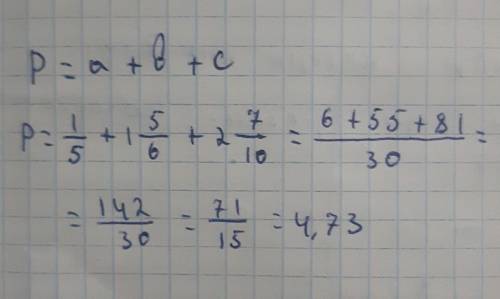 P = a + b + c
P = 1/5 + 1 5/6 + 2 7/10 = (6 + 55 + 81)/30 =
= 142/30 = 71/15 = 4,73